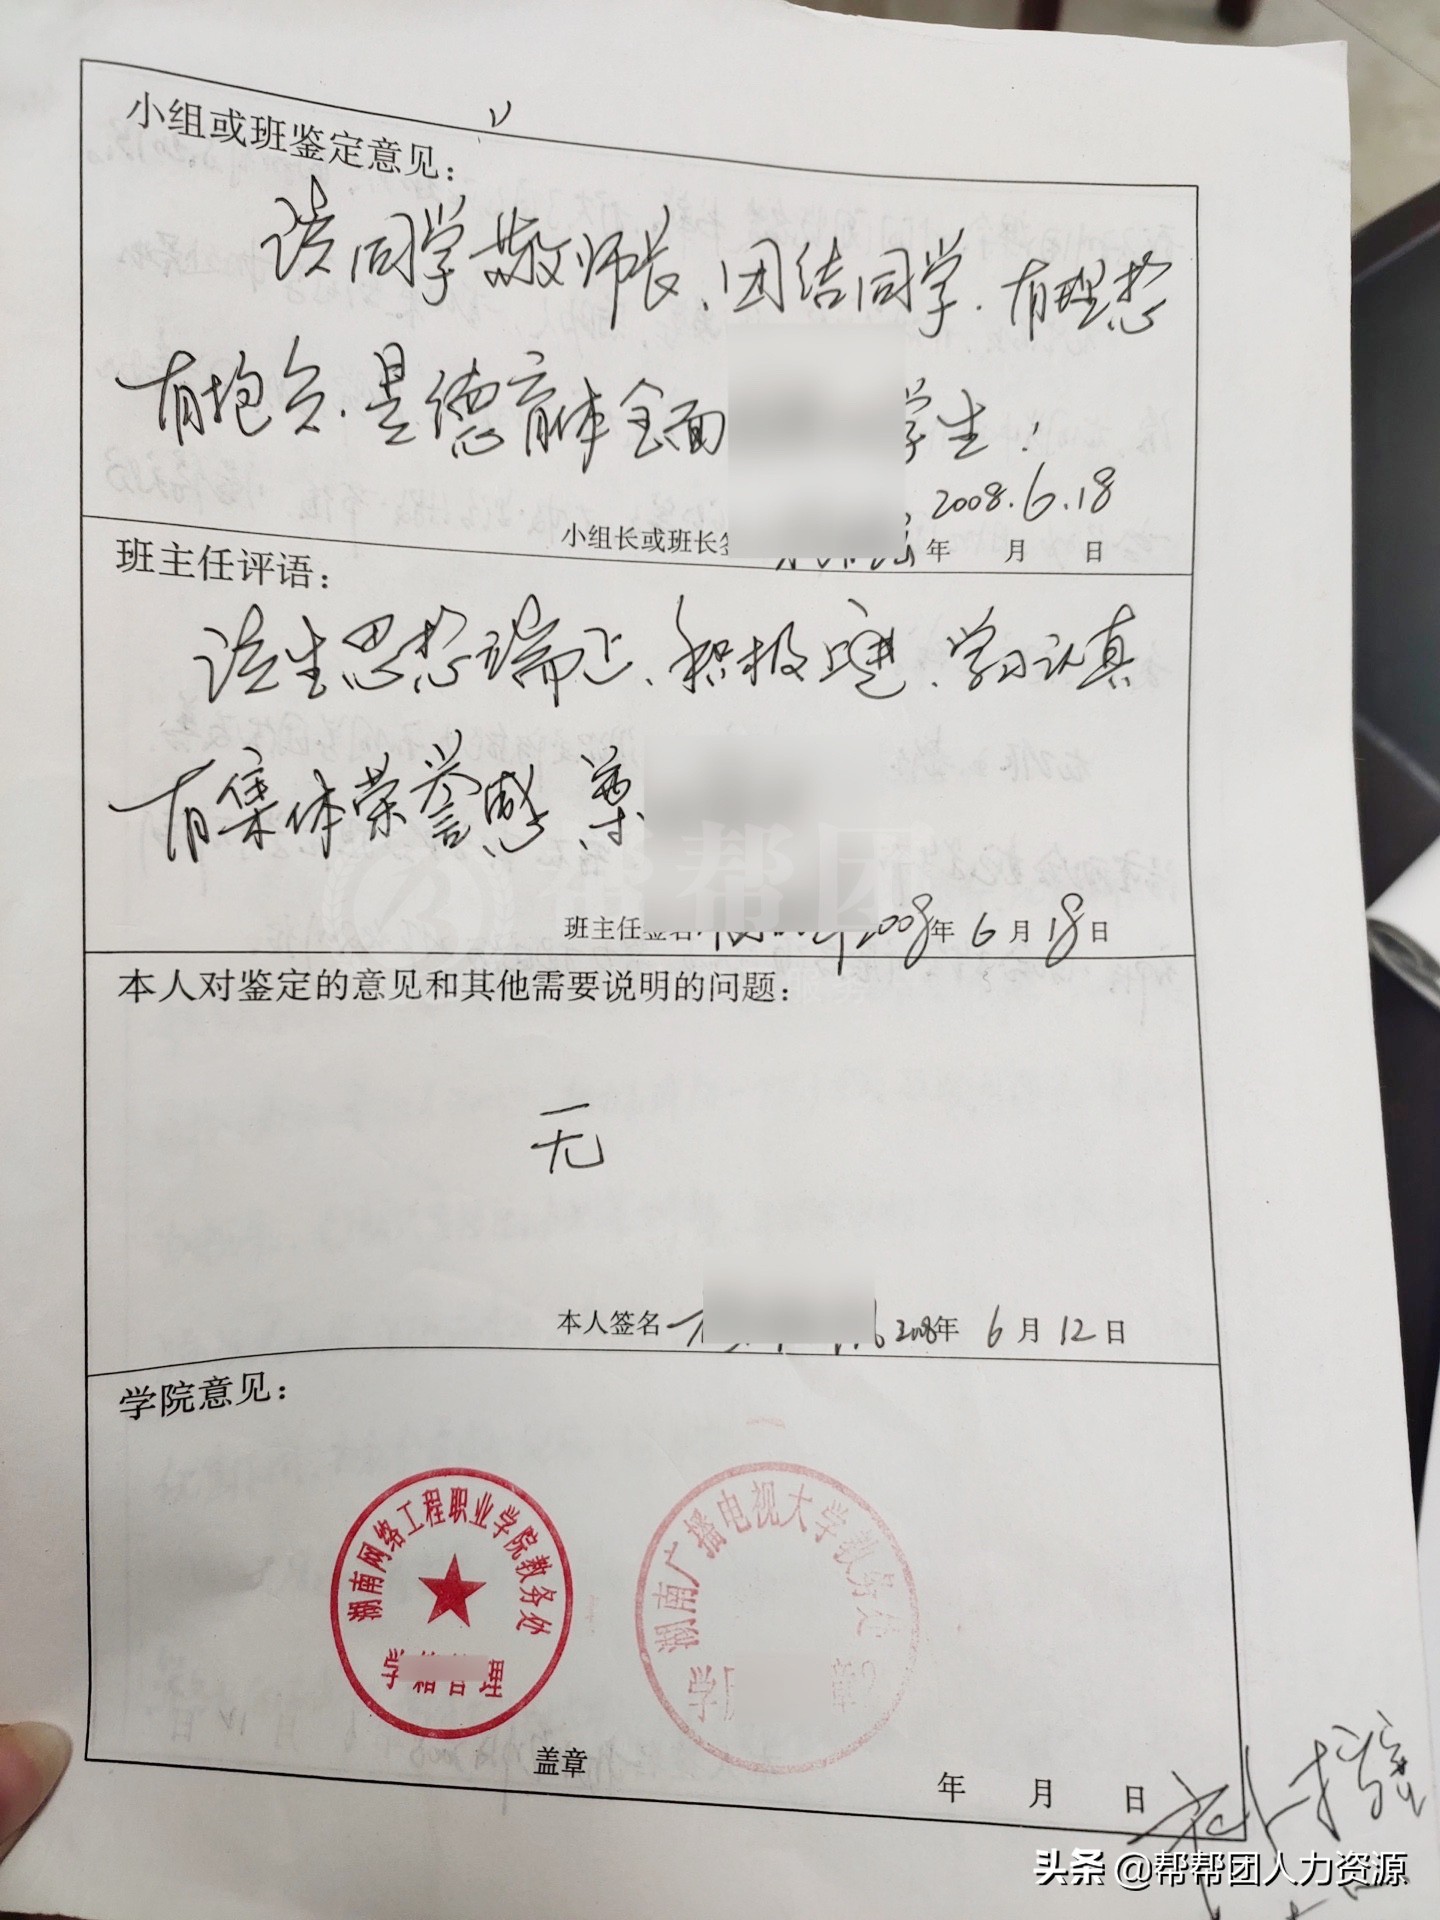 小组或班鉴定意见：
该同学敬师长、团结同学、有理想
有抱负、是德育体全面
学生！
2008.6.18
小组长或班长签 年 月 日
班主任评语：
该生思想端正、积极上进、学习认真
有集体荣誉感
班主任签名 2008年 6月 18日
本人对鉴定的意见和其他需要说明的问题：
无
本人签名 2008年 6月 12日
学院意见：
湖南网络工程职业学院教务处
学籍管理
湖南广播电视大学教务处
学 章
盖章
年 月 日
帮帮团
头条 @帮帮团人力资源